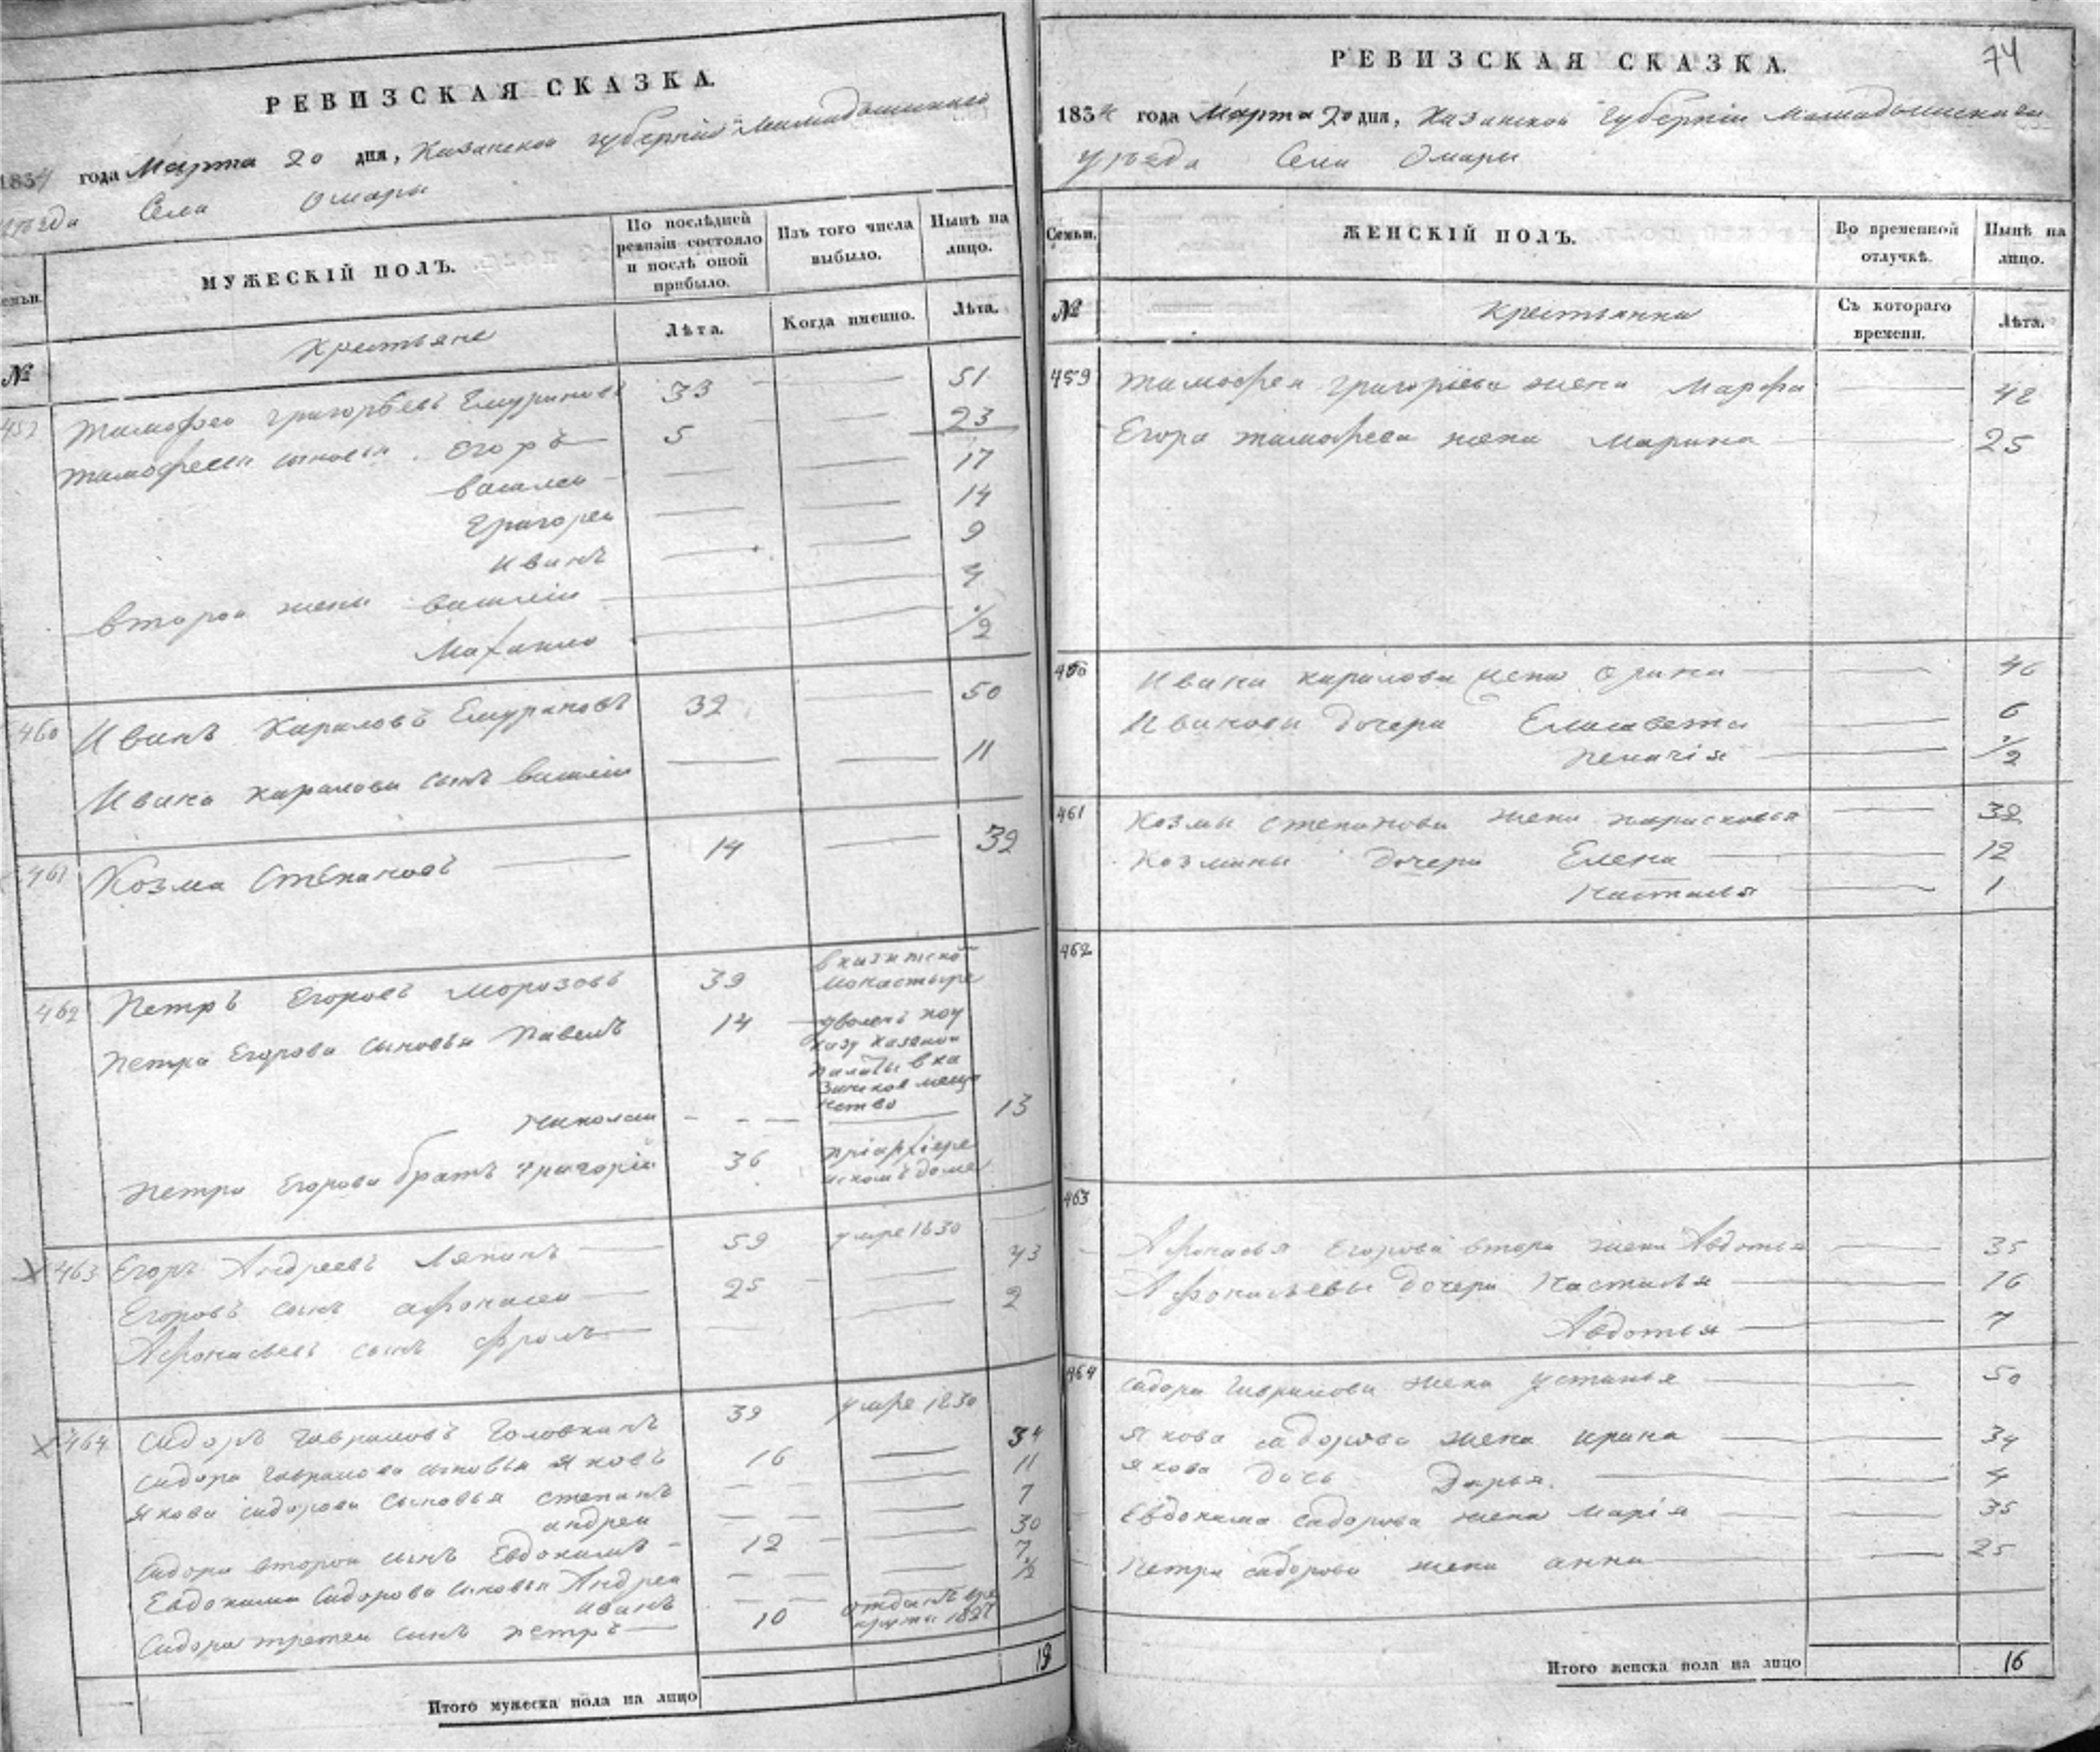 РЕВИЗСКАЯ СКАЗКА.
1834 года Марта 20 дня, Казанской губернiи Мамадышскаго
уѣзда Села Омары
Семьи.
МУЖЕСКIЙ ПОЛЪ.
По послѣдней ревизiи состояло и послѣ оной прибыло.
Изъ того числа выбыло.
Нынѣ на лицо.
№
Крестьяне
Лѣта.
Когда именно.
Лѣта.
Тимофеи Григорьевъ Емурановъ 33 51
Тимофееи сыновья Егоръ 5 23
Василеи 17
Григореи 14
Иванъ 9
Второи жены Василiи 4
Михаило 1/2
460 Иванъ Кариловъ Емурановъ 32 50
Ивана Карилова сынъ Василiи 11
461 Козма Степановъ 14 32
462 Петръ Егоровъ Морозовъ 39 в казанско монастыре
Петра Егорова сыновья Павелъ 14 уволенъ поу
казу казенои
палаты в ка
Николаи 13
Петра Егорова братъ Григорiи 36 приархiере
искомъ доме
463 Егоръ Андреевъ Ляпинъ 59 умре 1830
Егоровъ сынъ Афонасеи 25 43
Афонасьевъ сынъ Фролъ 2
464 Сидоръ Гавриловъ Головкинъ 39 умре 1830
Сидора Гаврилова сыновья Яковъ 16 34
Якова Сидорова сыновья Степанъ 11
Андреи 7
Сидора второи сынъ Евдокимъ 12 30
Евдокима Сидорова сыновья Андреи 7
Иванъ 1/2
Сидора третеи сынъ Петръ 10 отданъ вре
круты 1827
Итого мужеска пола на лицо 19
74
РЕВИЗСКАЯ СКАЗКА.
1834 года Марта 20 дня, Казанской Губернiи Мамадышскаго
уѣзда Села Омары
Семьи.
ЖЕНСКIЙ ПОЛЪ.
Во временной отлучкѣ.
Нынѣ на лицо.
№
Крестьянки
Съ котораго времени.
Лѣта.
459 Тимофея Григорiева жена Марфа 42
Егора Тимофеева жена Марина 25
Ивана Карилова жена Орина 46
Ивановы дочери Елисавета 6
Пелагiя 1/2
461 Козмы Степанова жена Парасковья 32
Козмины дочери Елена 12
Настасья 1
462
463
Афонасья Егорова втора жена Авдотья 35
Афонасьевы дочери Настасья 16
Авдотья 7
464 Сидора Гаврилова жена Устинья 50
Якова Сидорова жена Ирина 34
Якова дочь Дарья. 4
Евдокима Сидорова жена Марiя 35
Петра Сидорова жена Анна 25
Итого женска пола на лицо 16